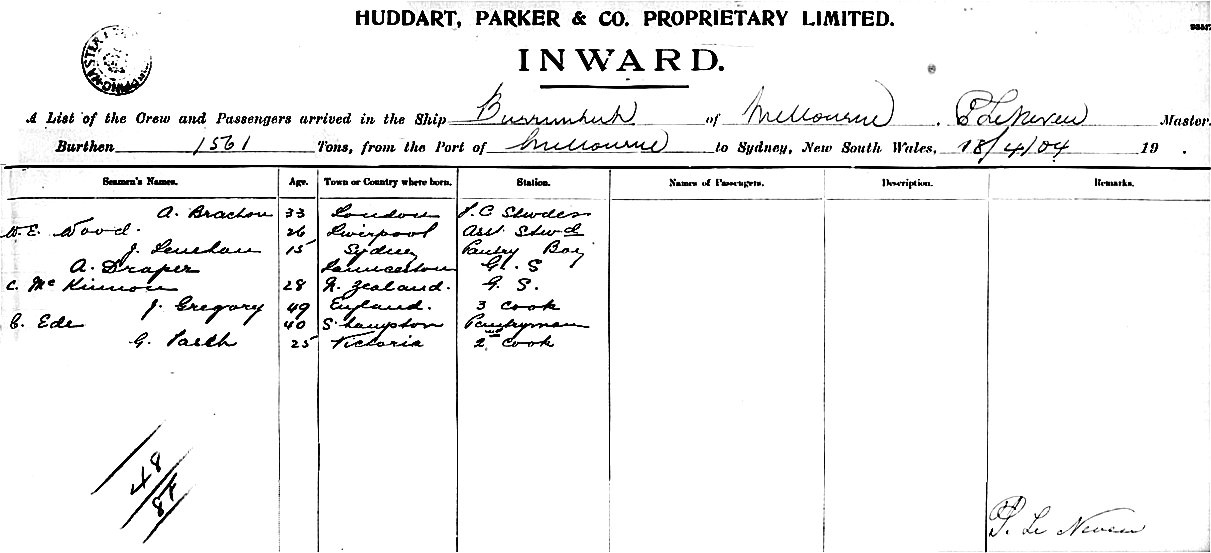 HUDDART, PARKER & CO. PROPRIETARY LIMITED.
INWARD.
A List of the Crew and Passengers arrived in the Ship Burrumbeet of Melbourne, P Le Neveu Master
Burthen 1561 Tons, from the Port of Melbourne to Sydney, New South Wales, 18/4/04 19 .
Seamen's Names. Age. Town or Country where born. Station. Names of Passengers. Description. Remarks.
A. 33 London
W. E. Wood. 26 Liverpool Asst Stwd
J. Lenehan 15 Sydney Pantry Boy
A. Draper Launceston G. S
C. McKinnon 28 N. Zealand. G. S.
J. Gregory 49 England. 3 Cook
C. Ede 40 S.hampton Pantryman
G. 25 Victoria 2nd Cook
48
P. Le Neveu